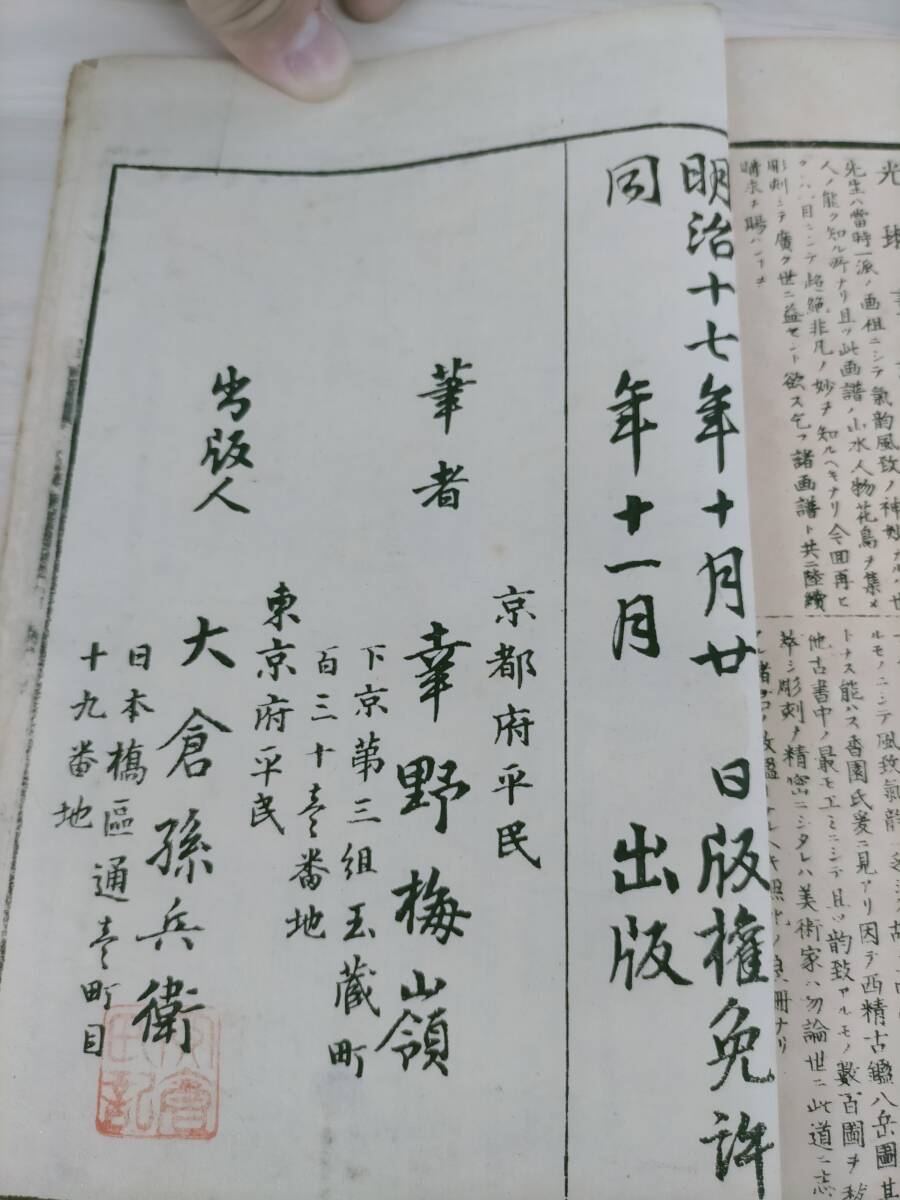 光琳
先生ハ當時一派ノ画祖ニシテ氣韵風致ノ神妙ナルハ世
人ノ能ク知ル所ナリ且ツ此画譜ノ山水人物花鳥ヲ集メ
目シテ超絶非凡ノ妙ヲ知ルヘキナリ今回再ヒ
彫刻シテ廣ク世ニ益セント欲ス乞フ諸画譜ト共ニ陸續
購求ヲ賜ハン
ルモノニシテ風致氣韵
トナス能ハス香園氏爰ニ見アリ因テ西精古鑑八岳圖其
他古書中ノ最モ工ミニシテ且ツ韵致アルモノ數百圖ヲ
萃シ彫刻ヲ精密ニシタレハ美術家ハ勿論世ニ此道ニ志
明治十七年十月廿 日版權免許
同 年十一月 出版
京都府平民
筆者 幸野梅嶺
下京第三組玉藏町
百三十壱番地
東京府平民
出版人 大倉孫兵衛
日本橋區通壱町目
十九番地